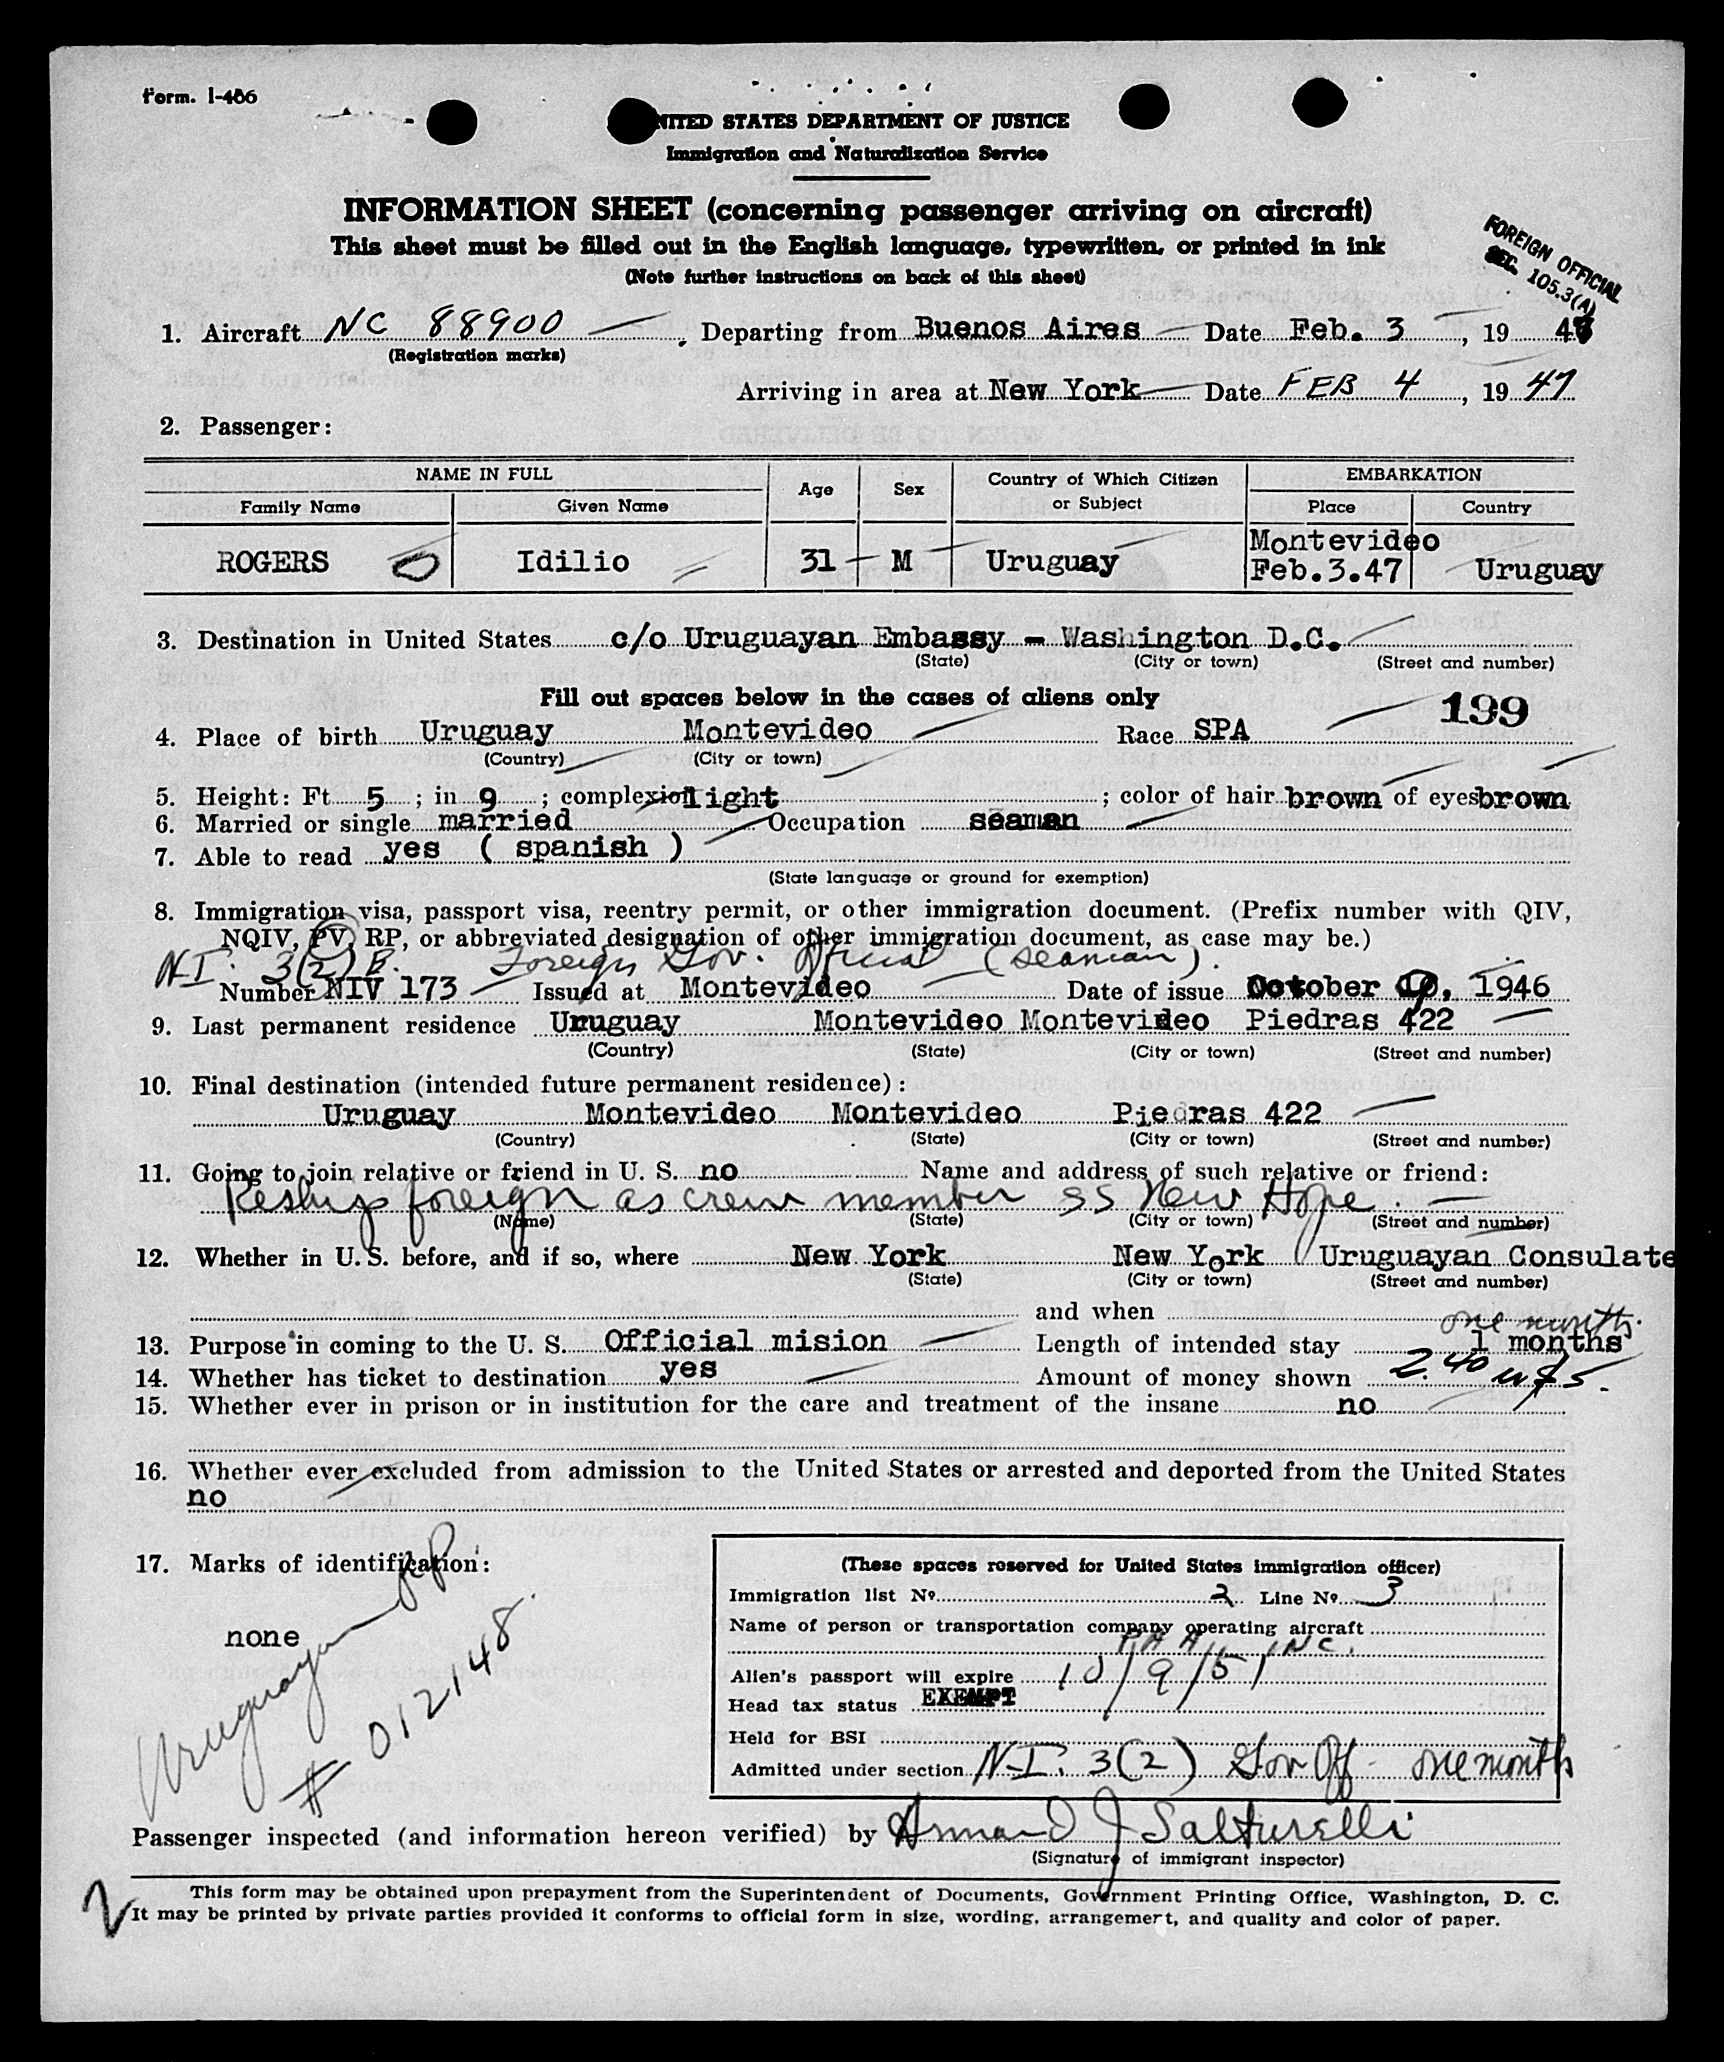 Form. I-466
UNITED STATES DEPARTMENT OF JUSTICE
Immigration and Naturalization Service
INFORMATION SHEET (concerning passenger arriving on aircraft)
This sheet must be filled out in the English language, typewritten, or printed in ink
(Note further instructions on back of this sheet)
FOREIGN OFFICIAL
SEC. 105.3(A)
1. Aircraft NC 88900, Departing from Buenos Aires Date Feb. 3, 19 47
(Registration marks)
Arriving in area at New York Date FEB 4, 19 47
2. Passenger:
NAME IN FULL Age Sex Country of Which Citizen or Subject EMBARKATION
Family Name Given Name Place Country
ROGERS Idilio 31 M Uruguay Montevideo Feb.3.47 Uruguay
3. Destination in United States c/o Uruguayan Embassy - Washington D.C.
(State) (City or town) (Street and number)
Fill out spaces below in the cases of aliens only
199
4. Place of birth Uruguay Montevideo Race SPA
(Country) (City or town)
5. Height: Ft 5 ; in 9 ; complexion light ; color of hair brown of eyes brown
6. Married or single married Occupation seaman
7. Able to read yes ( spanish )
(State language or ground for exemption)
8. Immigration visa, passport visa, reentry permit, or other immigration document. (Prefix number with QIV,
NQIV, PV, RP, or abbreviated designation of other immigration document, as case may be.)
N-I. 3(2) B. Foreign Gov. Official (seaman).
Number NIV 173 Issued at Montevideo Date of issue October 10, 1946
9. Last permanent residence Uruguay Montevideo Montevideo Piedras 422
(Country) (State) (City or town) (Street and number)
10. Final destination (intended future permanent residence):
Uruguay Montevideo Montevideo Piedras 422
(Country) (State) (City or town) (Street and number)
11. Going to join relative or friend in U. S. no Name and address of such relative or friend:
Reship foreign as crew member SS New Hope.
(Name) (State) (City or town) (Street and number)
12. Whether in U. S. before, and if so, where New York New York Uruguayan Consulate
(State) (City or town) (Street and number)
and when
one month.
13. Purpose in coming to the U. S. Official mision Length of intended stay 1 months
14. Whether has ticket to destination yes Amount of money shown 2.40
15. Whether ever in prison or in institution for the care and treatment of the insane no
16. Whether ever excluded from admission to the United States or arrested and deported from the United States
no
17. Marks of identification:
none
Uruguayan P.P.
# 012148.
(These spaces reserved for United States immigration officer)
Immigration list No. 2 Line No. 3
Name of person or transportation company operating aircraft
PAA, INC.
Alien's passport will expire 10/9/51
Head tax status EXEMPT
Held for BSI
Admitted under section N-I. 3(2) Gov Off - one month
Passenger inspected (and information hereon verified) by Armand J Salturelli
(Signature of immigrant inspector)
2
This form may be obtained upon prepayment from the Superintendent of Documents, Government Printing Office, Washington, D. C.
It may be printed by private parties provided it conforms to official form in size, wording, arrangement, and quality and color of paper.